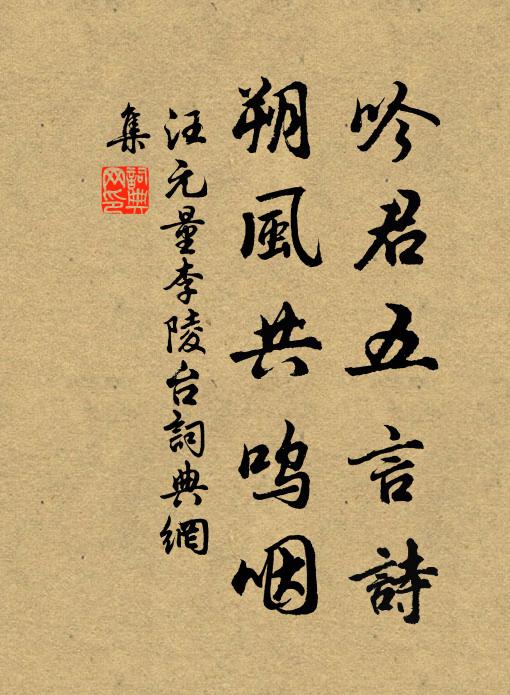 吟君五言詩
朔風共鸣咽
汪元量李陵台詞典網
集
詞典
网印